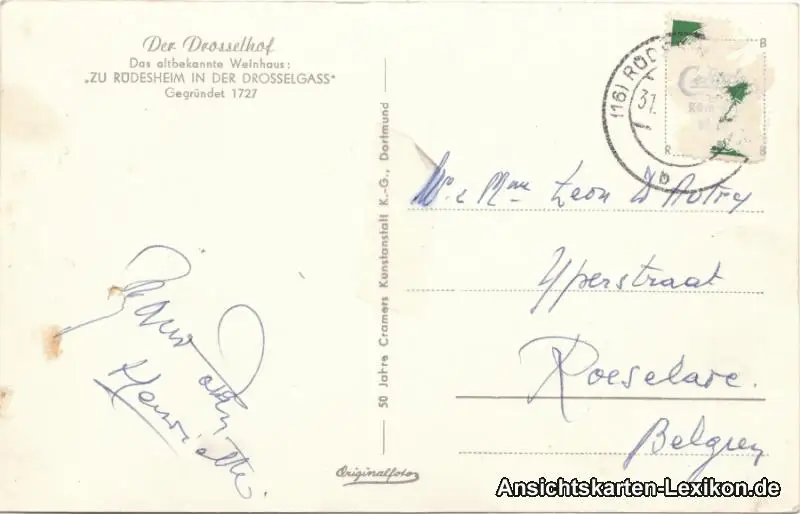 Der Drosselhof
Das altbekannte Weinhaus:
„ZU RÜDESHEIM IN DER DROSSELGASS"
Gegründet 1727
50 Jahre Cramers Kunstanstalt K.-G., Dortmund
(16) RÜDES
31.
b
R B
R B
Mr & Mme Leon D'Autry
Yperstraat
Roeselare.
Belgien
Henriette.
Originalfoto
Ansichtskarten-Lexikon.de